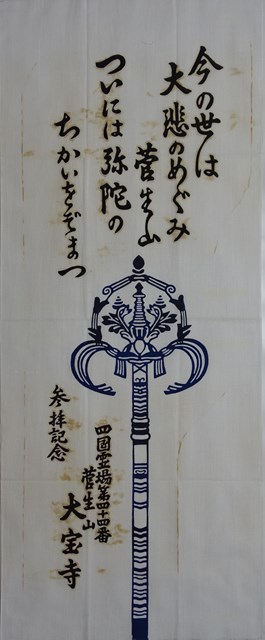 今の世は
大悲のめぐみ
菅生山
ついには弥陀の
ちかいをぞまつ
四国霊場第四十四番
菅生山
大宝寺
参拝記念